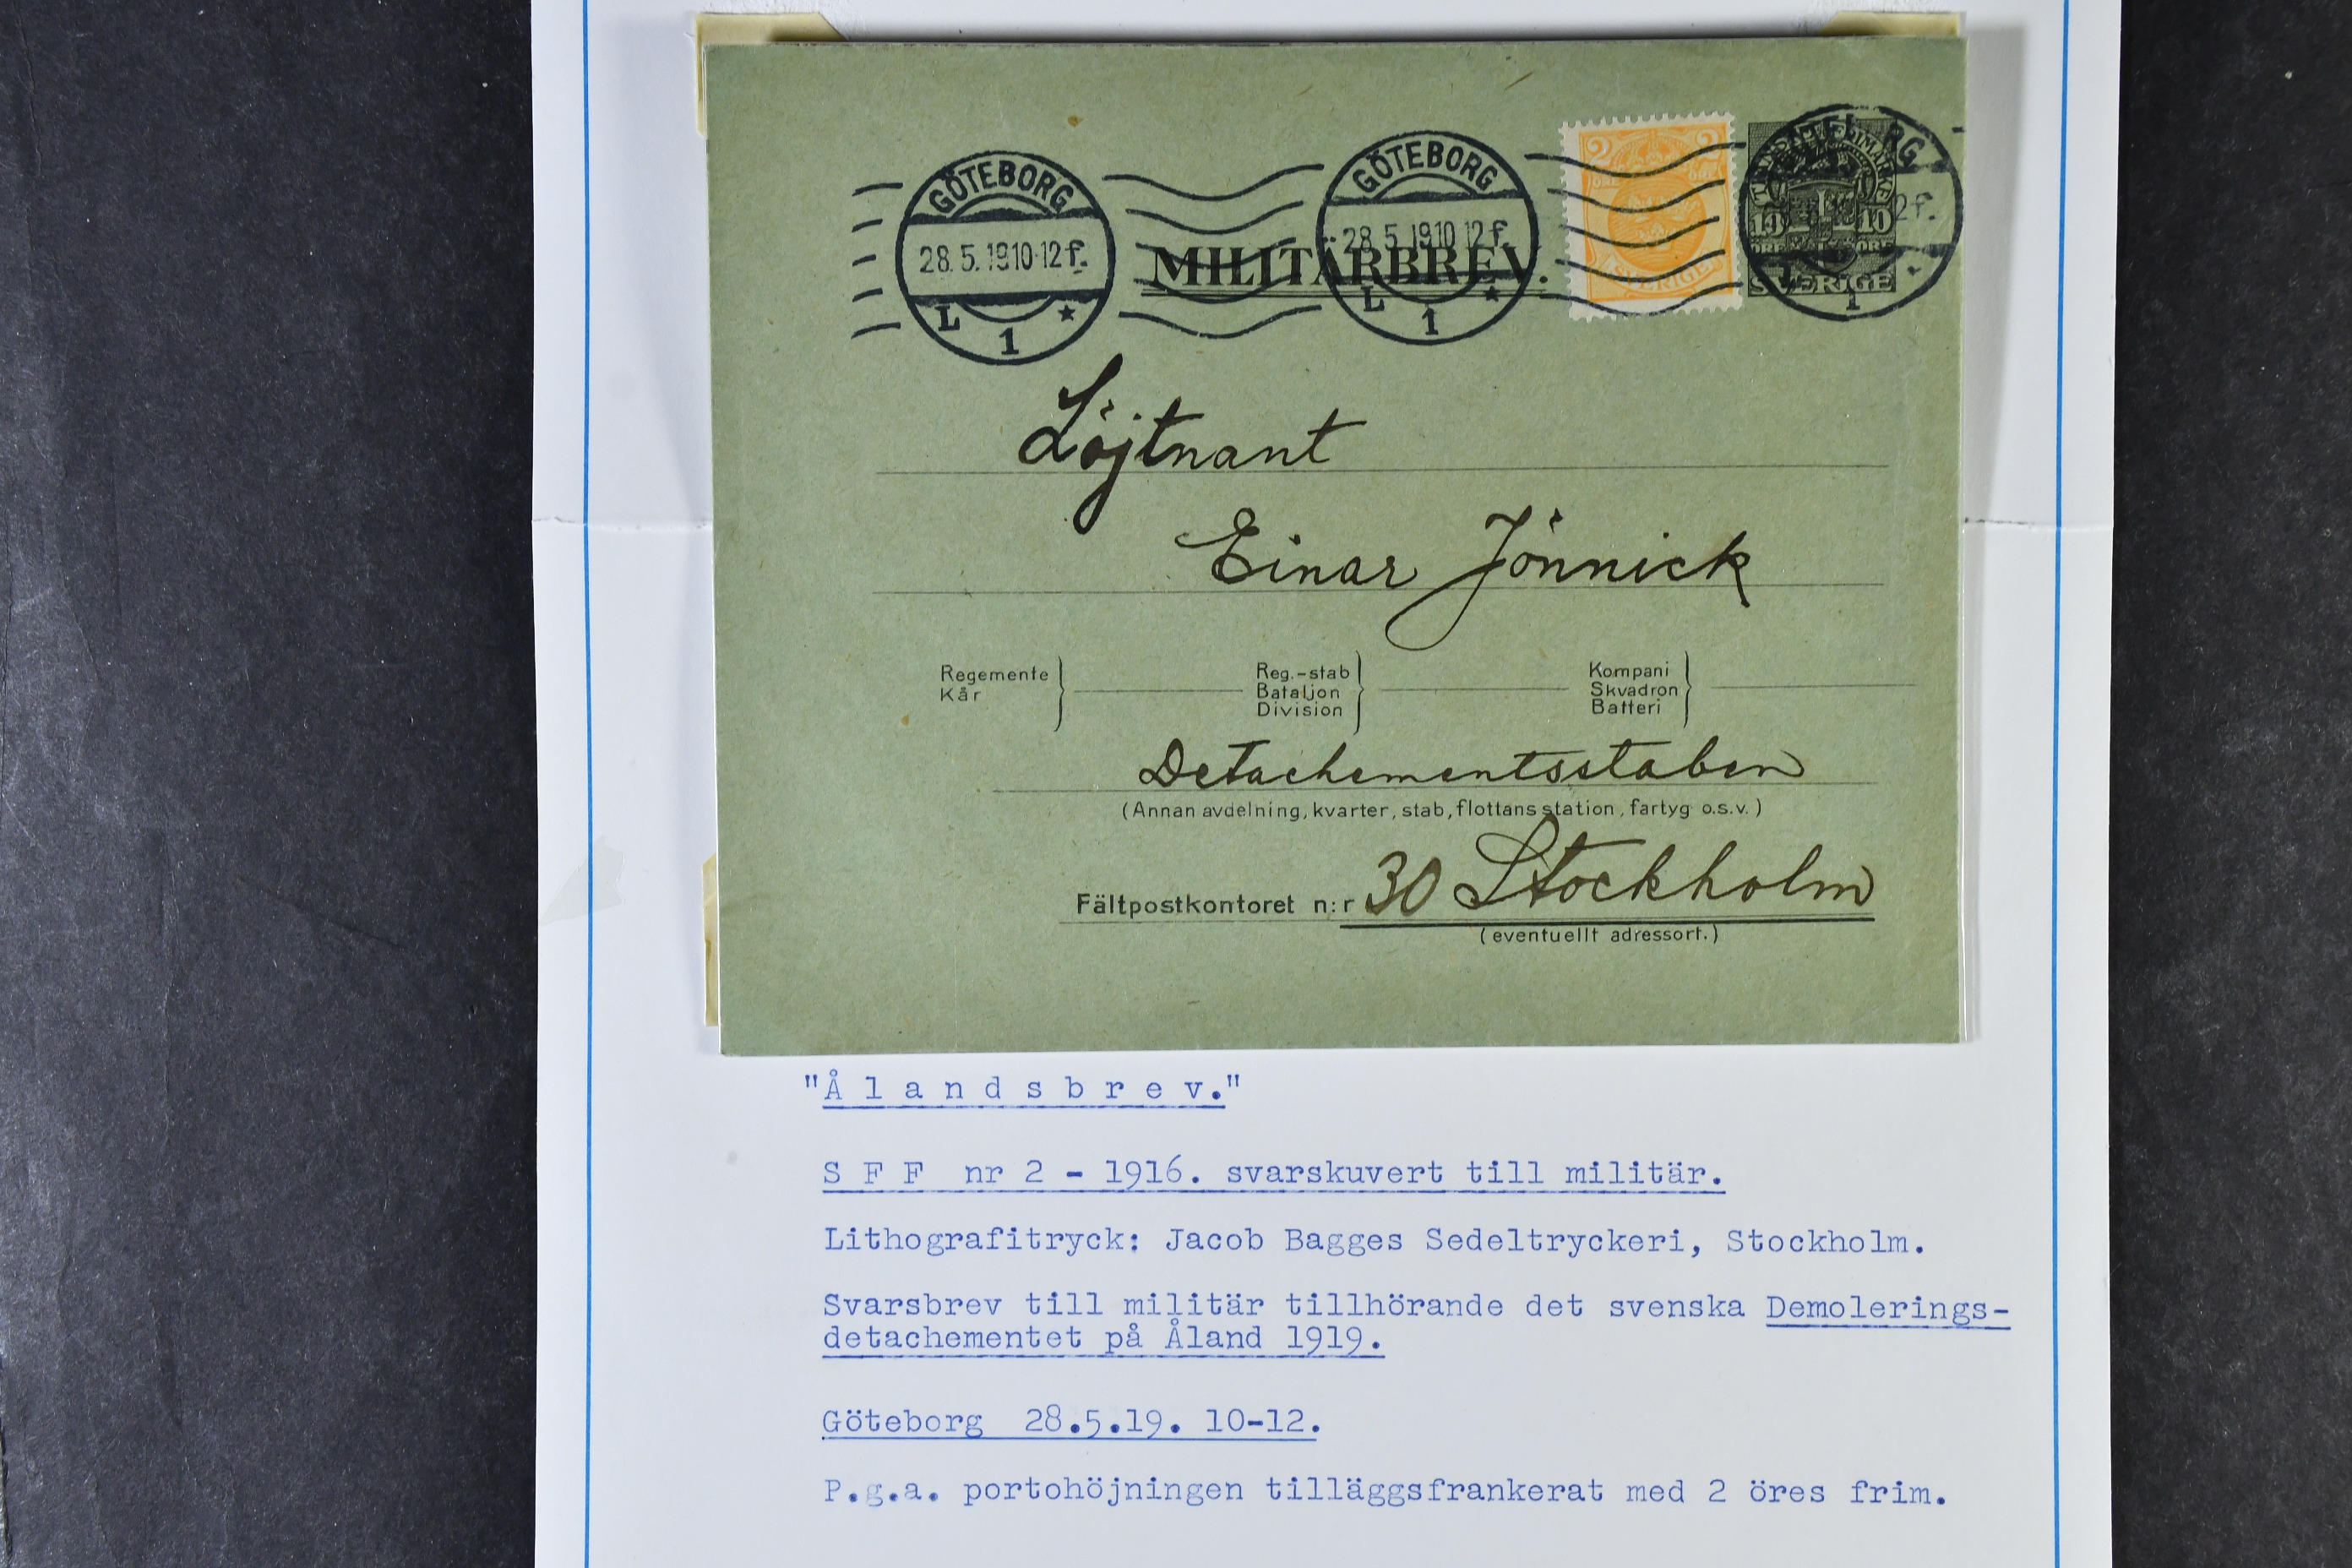 GÖTEBORG
28.5.1910-12 f.
L 1 *
MILITÄRBREV.
GÖTEBORG
28.5.1910 12 f.
L 1 *
2 2
ÖRE ÖRE
SVERIGE
10 10
ÖRE ÖRE
SVERIGE
RG
2 f.
1
Löjtnant
Einar Jönnick
Regemente
Kår
Reg.-stab
Bataljon
Division
Kompani
Skvadron
Batteri
Detachementsstaben
(Annan avdelning, kvarter, stab, flottans station, fartyg o.s.v.)
Fältpostkontoret n:r 30 Stockholm
(eventuellt adressort.)
"Ålandsbrev."
SFF nr 2 - 1916. svarskuvert till militär.
Lithografitryck: Jacob Bagges Sedeltryckeri, Stockholm.
Svarsbrev till militär tillhörande det svenska Demolerings-
detachementet på Åland 1919.
Göteborg 28.5.19. 10-12.
P.g.a. portohöjningen tilläggsfrankerat med 2 öres frim.